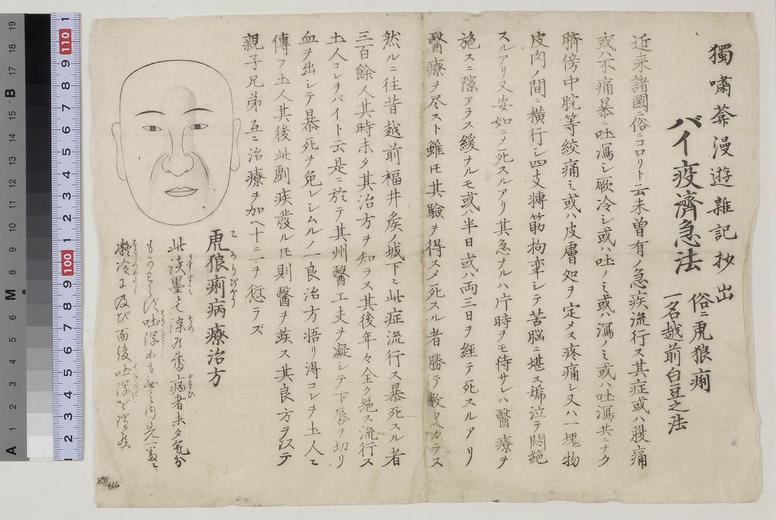 獨嘯菴漫遊雑記抄出
バイ疫濟急法
俗ニ虎狼痢
一名越前白豆之法
近来諸國ニ俗ニコロリト云未曽有ノ急疾流行ス其症或ハ腹痛
或ハ不痛暴ニ吐瀉シ厥冷シ或ハ吐ノミ或ハ瀉ノミ或ハ吐瀉共ニナク
臍傍中脘等絞痛シ或ハ皮膚処ヲ定メス疼痛シ又ハ一塊物
皮肉ノ間ニ横行シ四支轉筋拘牽シテ苦脳ニ堪ス號泣テ悶絶
スルアリ又安如ニノ死スルアリ其急ナルハ片時ヲモ待サレハ醫療ヲ
施スニ隙アラス緩ナルモ或ハ半日或ハ両三日ヲ經テ死スルアリ
醫療ヲ尽スト雖モ其驗ヲ得スメ死スル者勝テ數フヘカラス
然ルニ往昔越前福井矦ノ城下ニ此症流行ス暴死スル者
三百餘人其時未タ其治方ヲ知ラス其後年々全ク絶ス流行ス
土人コレヲバイト云是ニ於テ其州醫工夫ヲ凝シテ下唇ヲ切リ
血ヲ出シテ暴死ヲ免レシムルノ一良治方悟リ得コレヲ土人ニ
傳フ土人其後此劇疾發ルモ則醫ヲ竢ス其良方ヲ以テ
親子兄弟互ニ治療ヲ加ヘ十ニ一ヲ愆ラズ
虎狼痢病療治方
ころりびやう
此淡墨
病者未タ
吐瀉
厥冷に及び而後吐瀉